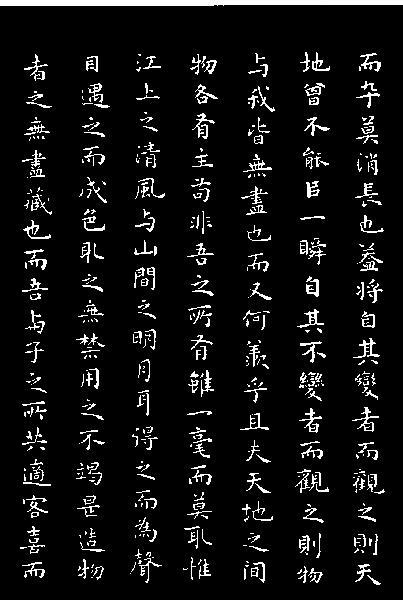 而卒莫消長也蓋將自其變者而觀之則天
地曾不能以一瞬自其不變者而觀之則物
与我皆無盡也而又何羨乎且夫天地之間
物各有主苟非吾之所有雖一毫而莫取惟
江上之清風与山間之明月耳得之而為聲
目遇之而成色取之無禁用之不竭是造物
者之無盡藏也而吾与子之所共適客喜而